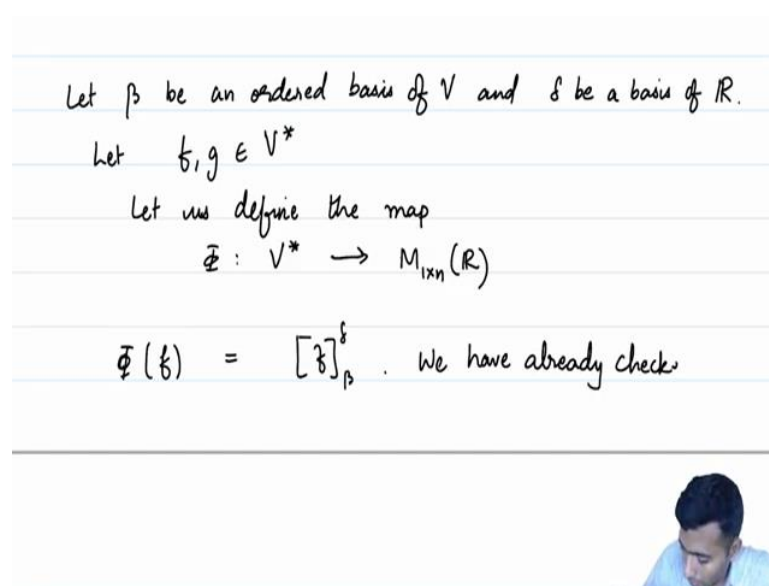 Let β be an ordered basis of V and δ be a basis of ℝ.
Let f, g ∈ V*
Let us define the map
Φ : V* → M₁ₓₙ(ℝ)
Φ(f) = [f]ᵟᵦ . We have already check